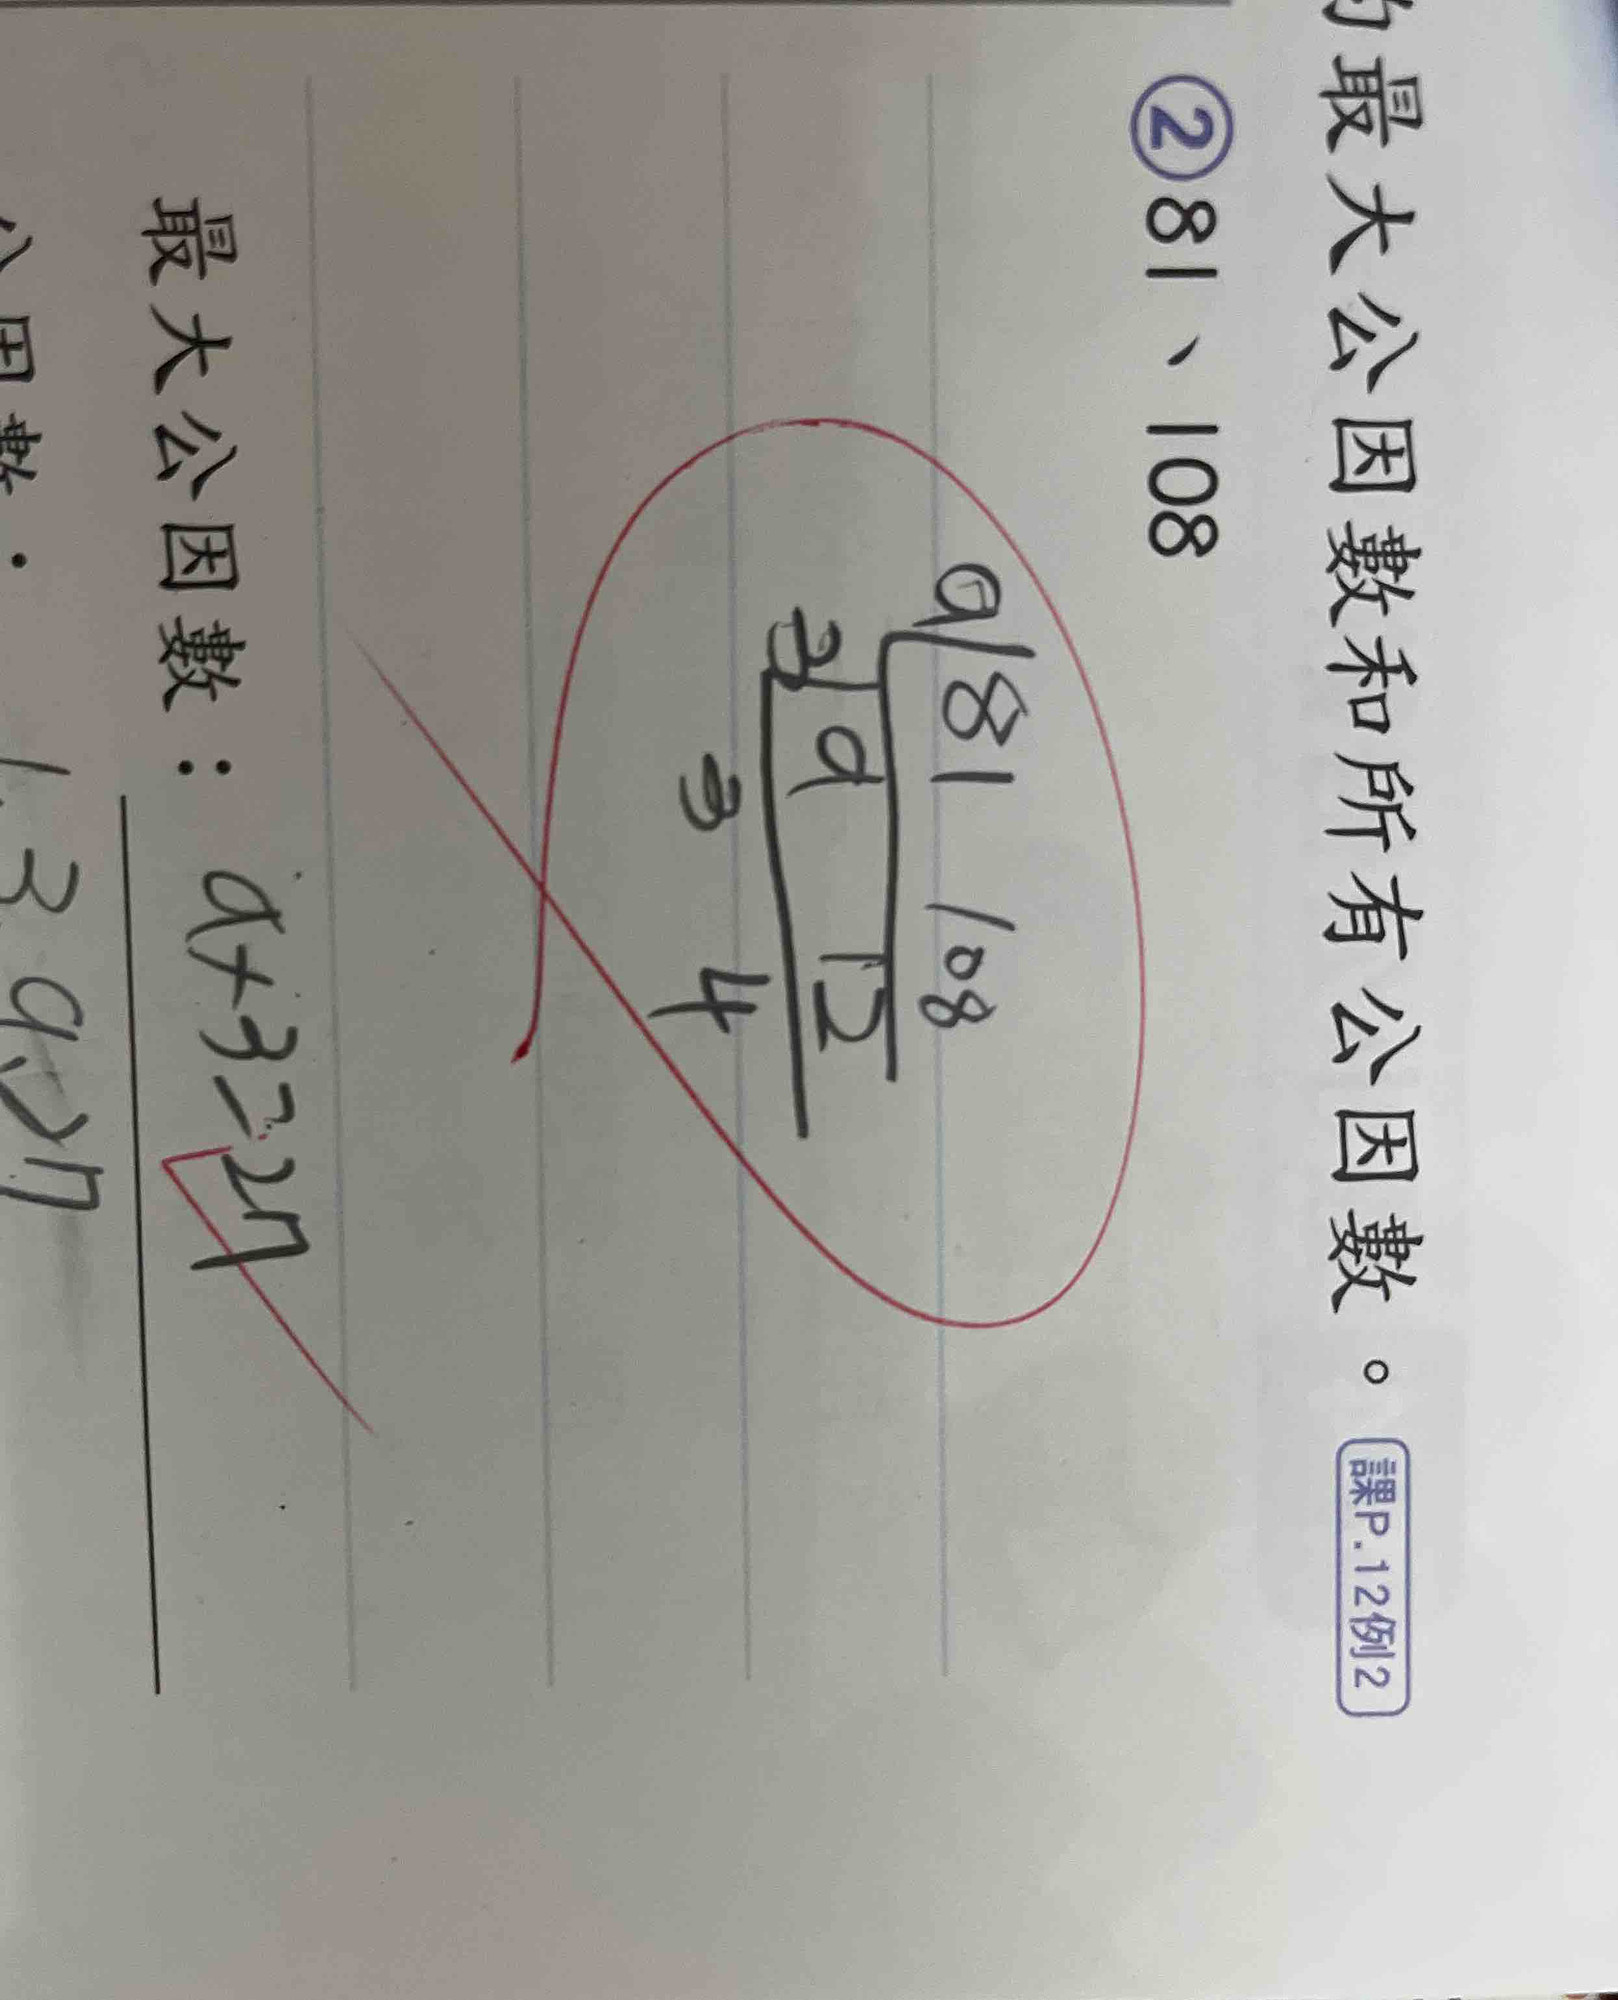 的最大公因數和所有公因數。 課P.12例2
②81、108
9 81 108
3 9 12
3 4
最大公因數：9×3=27
公因數：1、3、9、27